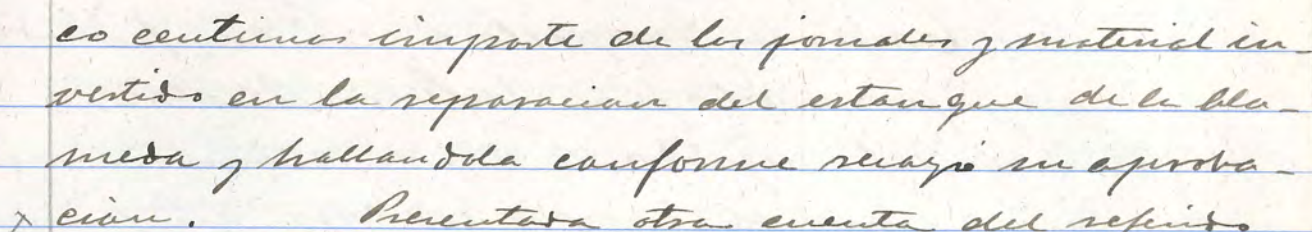 co centimos importe de los jornales y material in-
vertido en la reparacion del estanque de la Ala-
meda y hallandola conforme recayó su aproba-
x cion. Presentada otra cuenta del referido